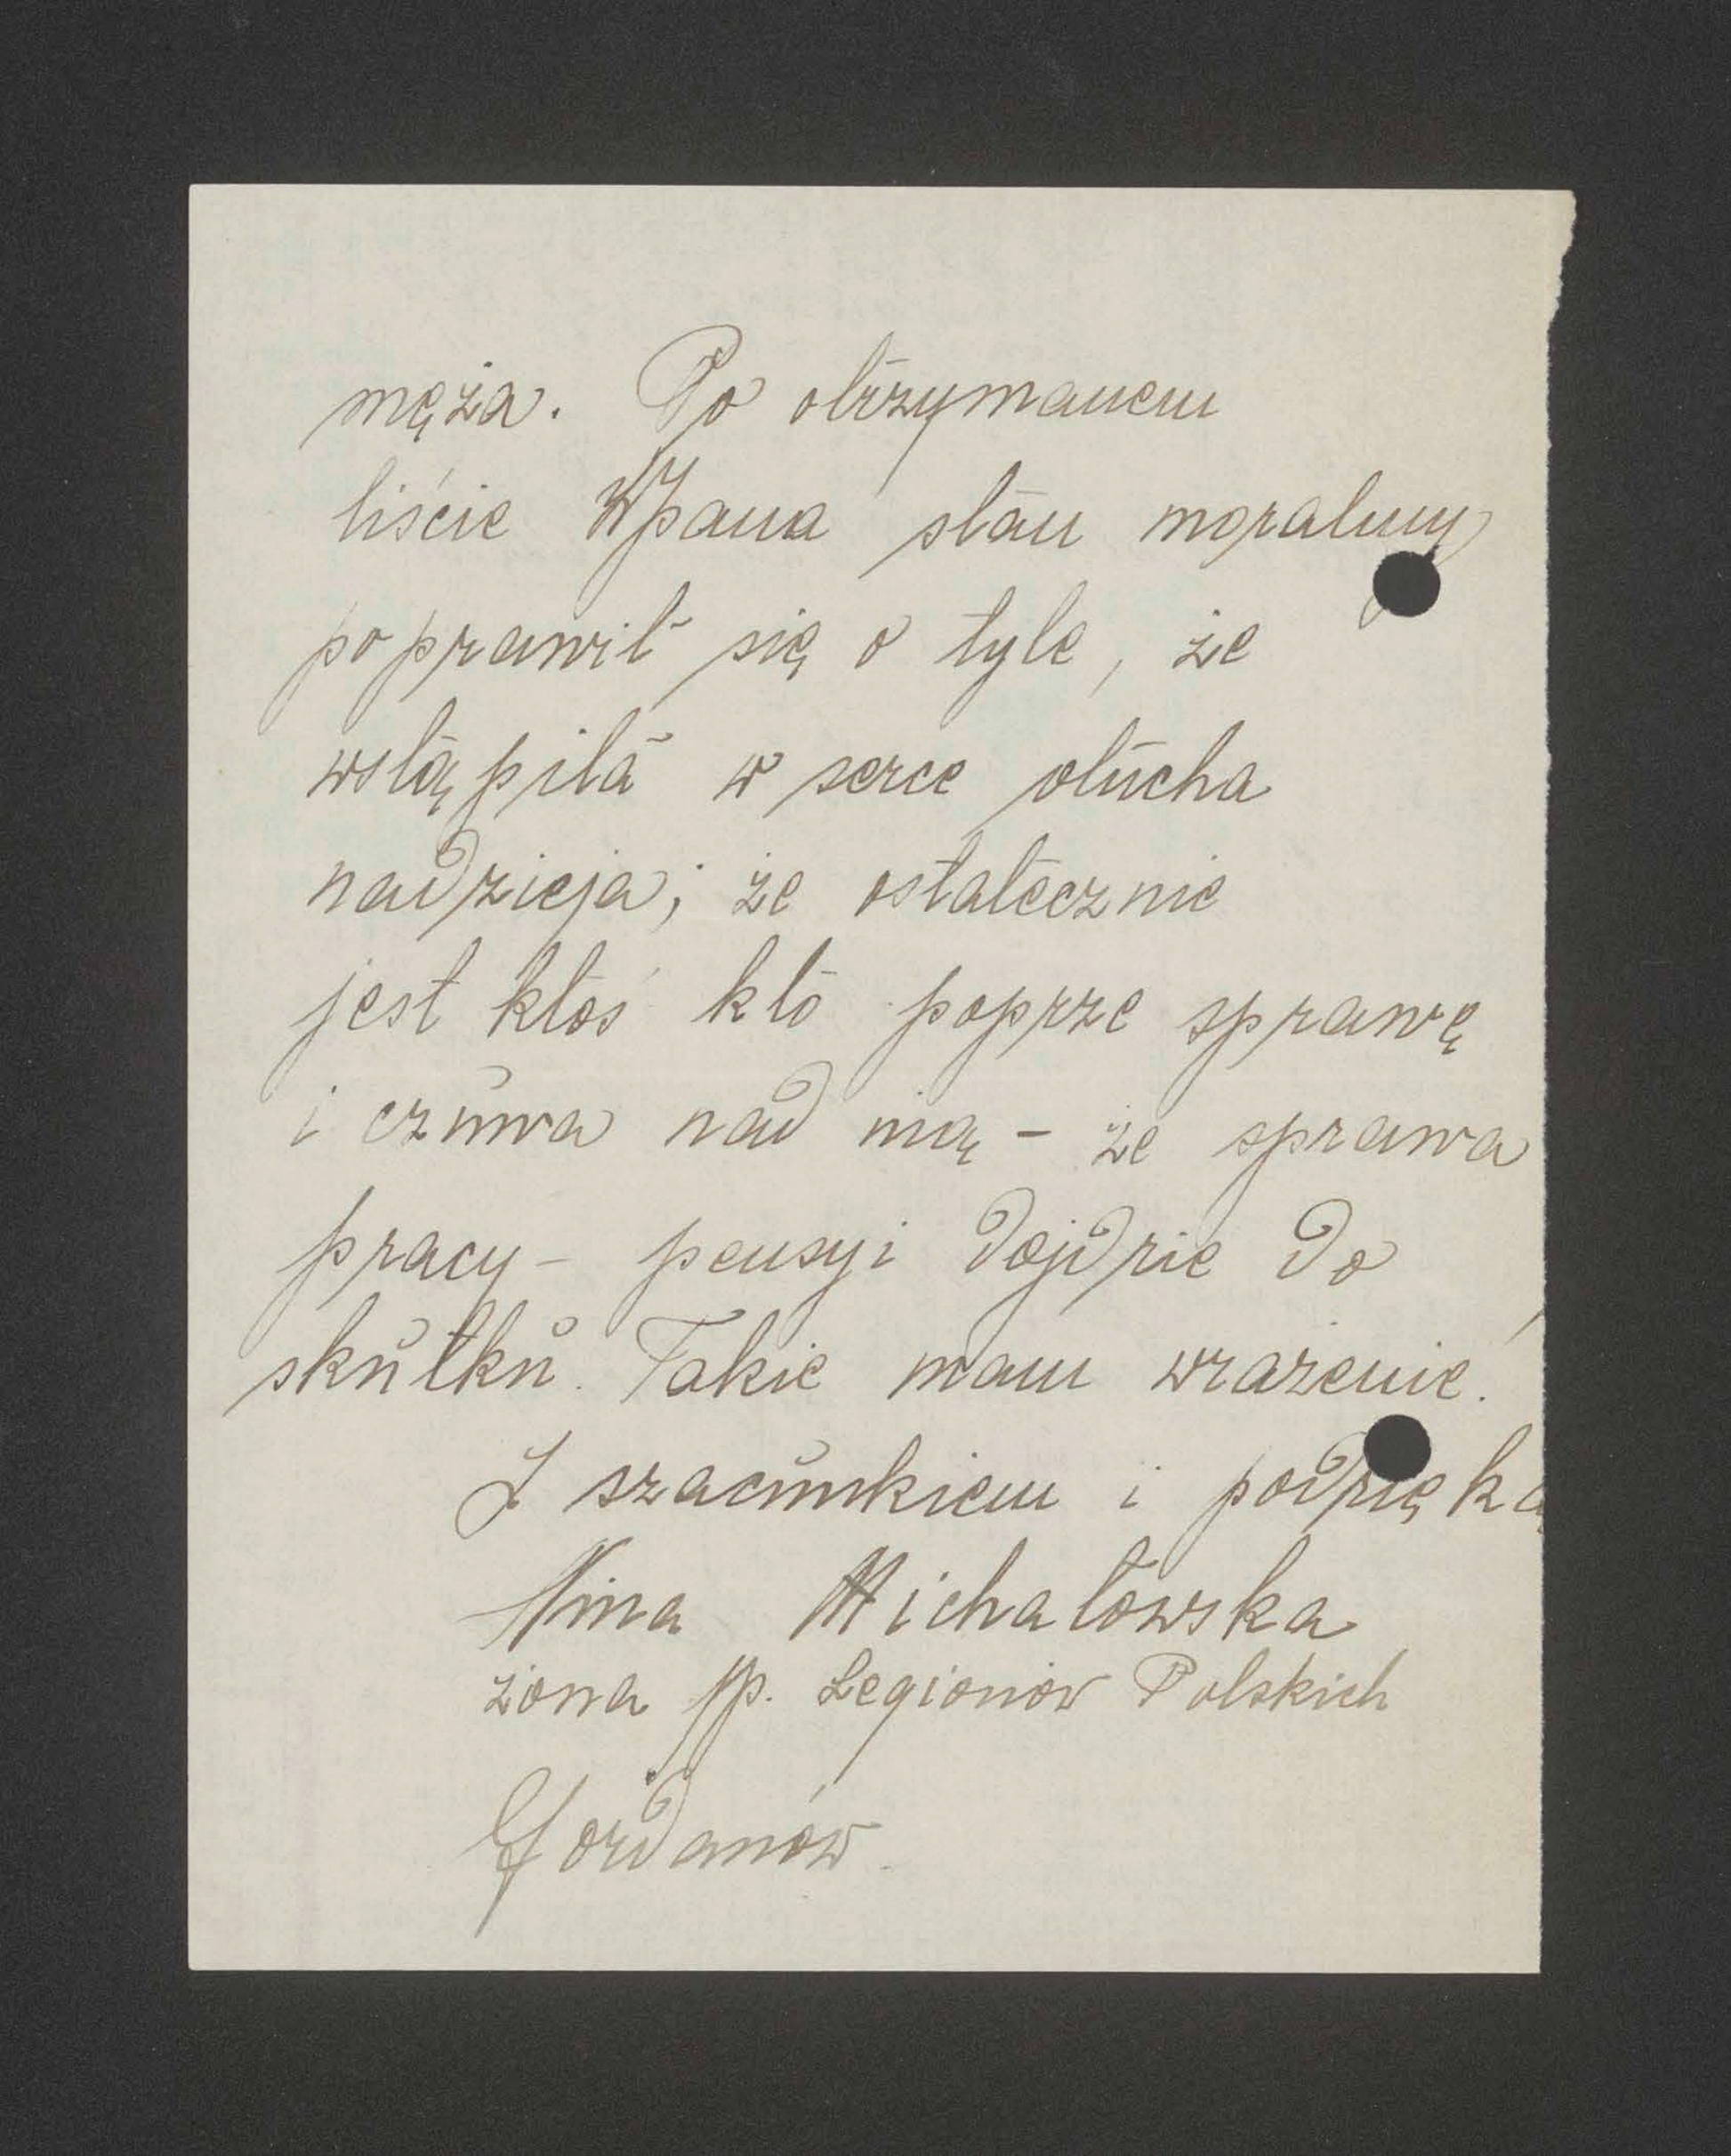 męża. Po otrzymanem
liście WPana stan moralny
poprawił się o tyle, że
wstąpiła w serce otucha
nadzieja; że ostatecznie
jest ktoś kto poprze sprawę
i czuwa nad nią - że sprawa
pracy - pensyi dojdzie do
skutku. Takie mam wrażenie.
Z szacunkiem i podzięką
Nina Michałowska
żona pp. Legionów Polskich
Jordanów.